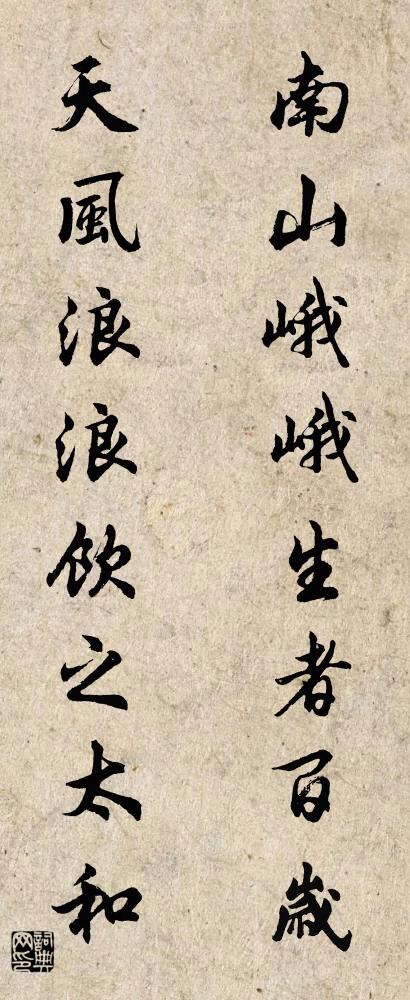 南山峨峨生者百歲
天風浪浪飲之太和
詞典網印